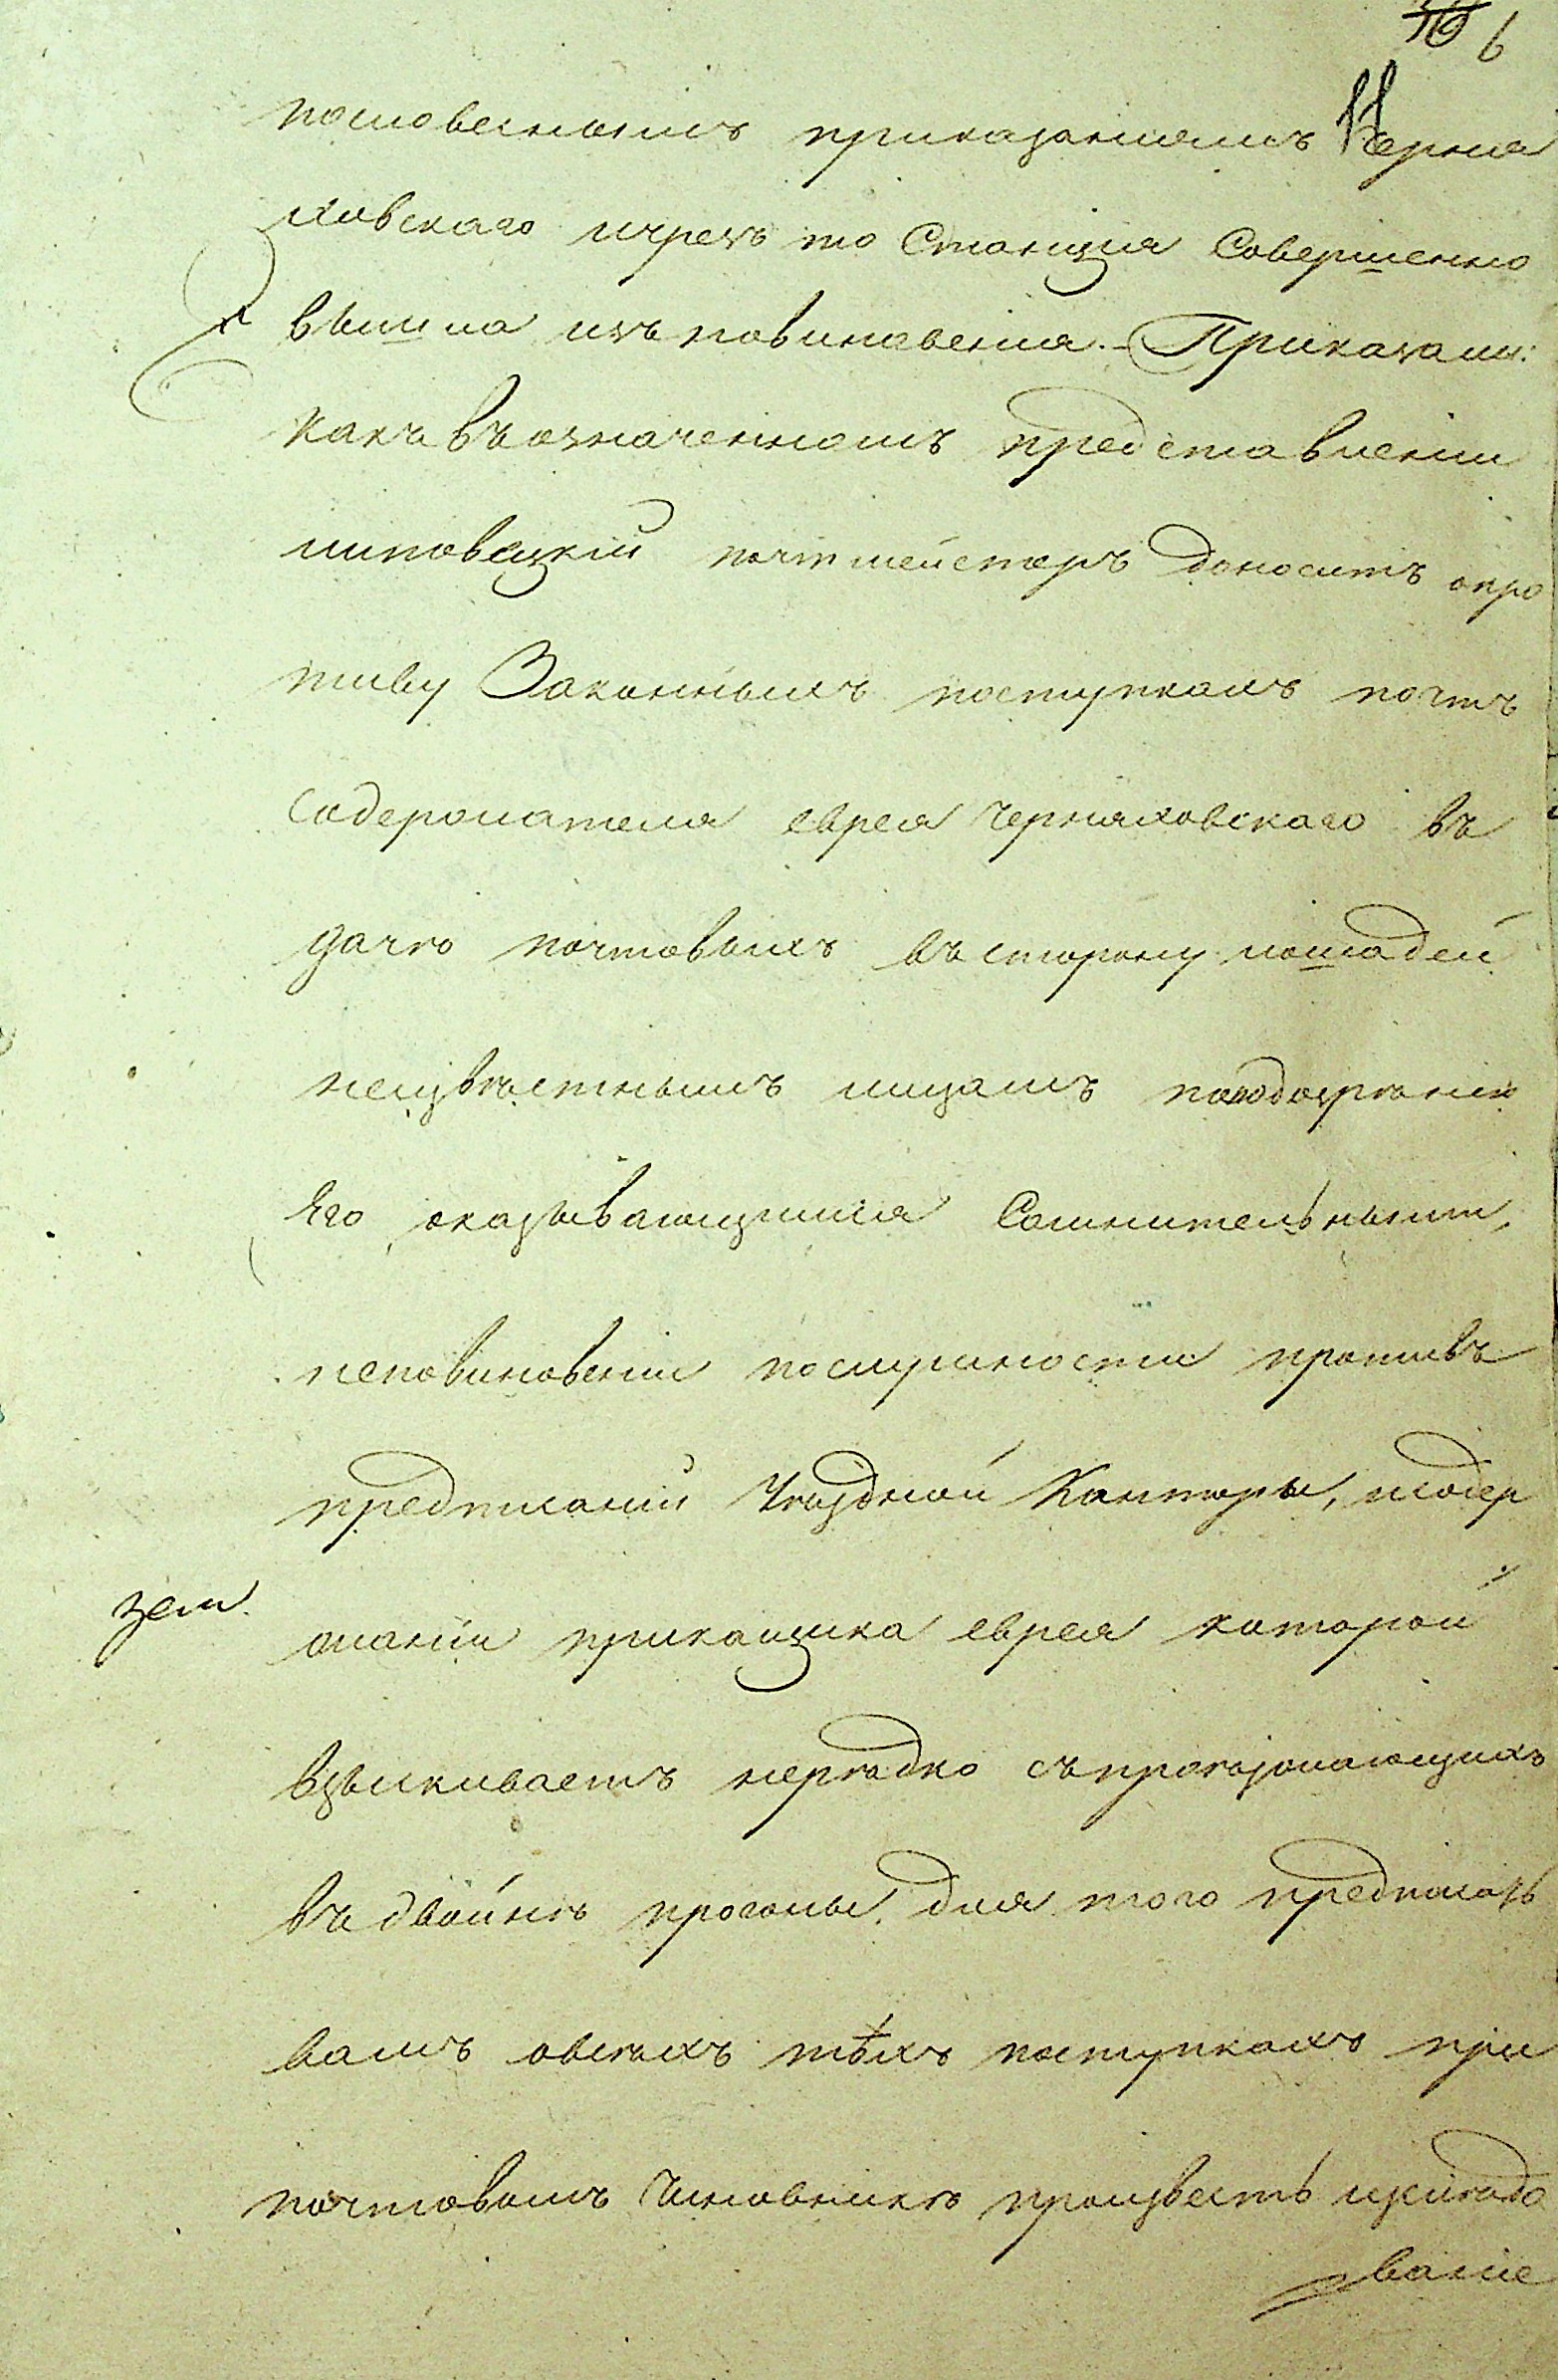 6
пословеснымъ приказаніямъ Черня
ховскаго ичрезъ то Станція Совершенно
вышла изъ повиновенія. – Приказали:
какъ въ означенномъ представленіи
липовецкій почтмейстеръ доноситъ опро
тиву Законнымъ поступкамъ почтъ
содержателя еврея Черняховскаго въ
дачѣ почтовыхъ въ сторону лошадей
неизвѣстнымъ лицамъ поподозрѣнію
Его оказывающимся Сомнительными,
неповиновеніи послушности противъ
предписаній Уѣздной Канторы, исодер
жаніи прикащика еврея которой
взыскиваетъ нерѣдко съпроѣзжающихъ
въ двойнѣ прогоны, для того предписать
вамъ овсѣхъ тѣхъ поступкахъ при
почтовомъ Чиновникѣ произвесть изслѣдо
ваніе
зем.